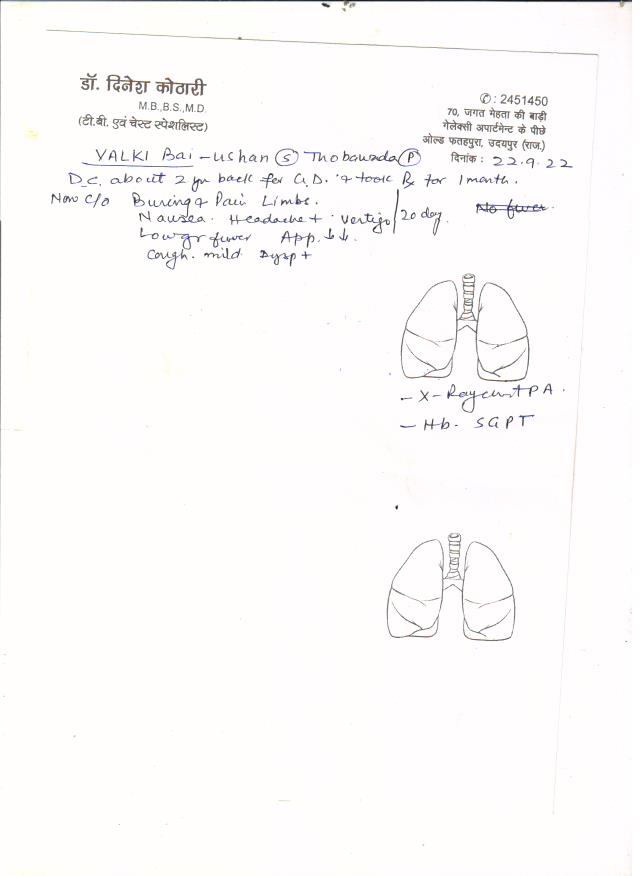 डॉ. दिनेश कोठारी
M.B.,B.S.,M.D.
(टी.बी. एवं चेस्ट स्पेशलिस्ट)
✆: 2451450
70, जगत मेहता की बाड़ी
गेलेक्सी अपार्टमेन्ट के पीछे
ओल्ड फतहपुरा, उदयपुर (राज.)
दिनांक : 22.9.22
VALKI Bai - ushan (S) Thobawada (P)
D.C. about 2 yr back for G.D. & took Rx for 1 month.
Now C/o Burning & Pain Limbs.
No fever.
Nausea. Headache + Vertigo / 20 day
Low gr fever App. ↓↓.
Cough. mild Dysp +
- X-Ray chest PA.
- Hb. SGPT